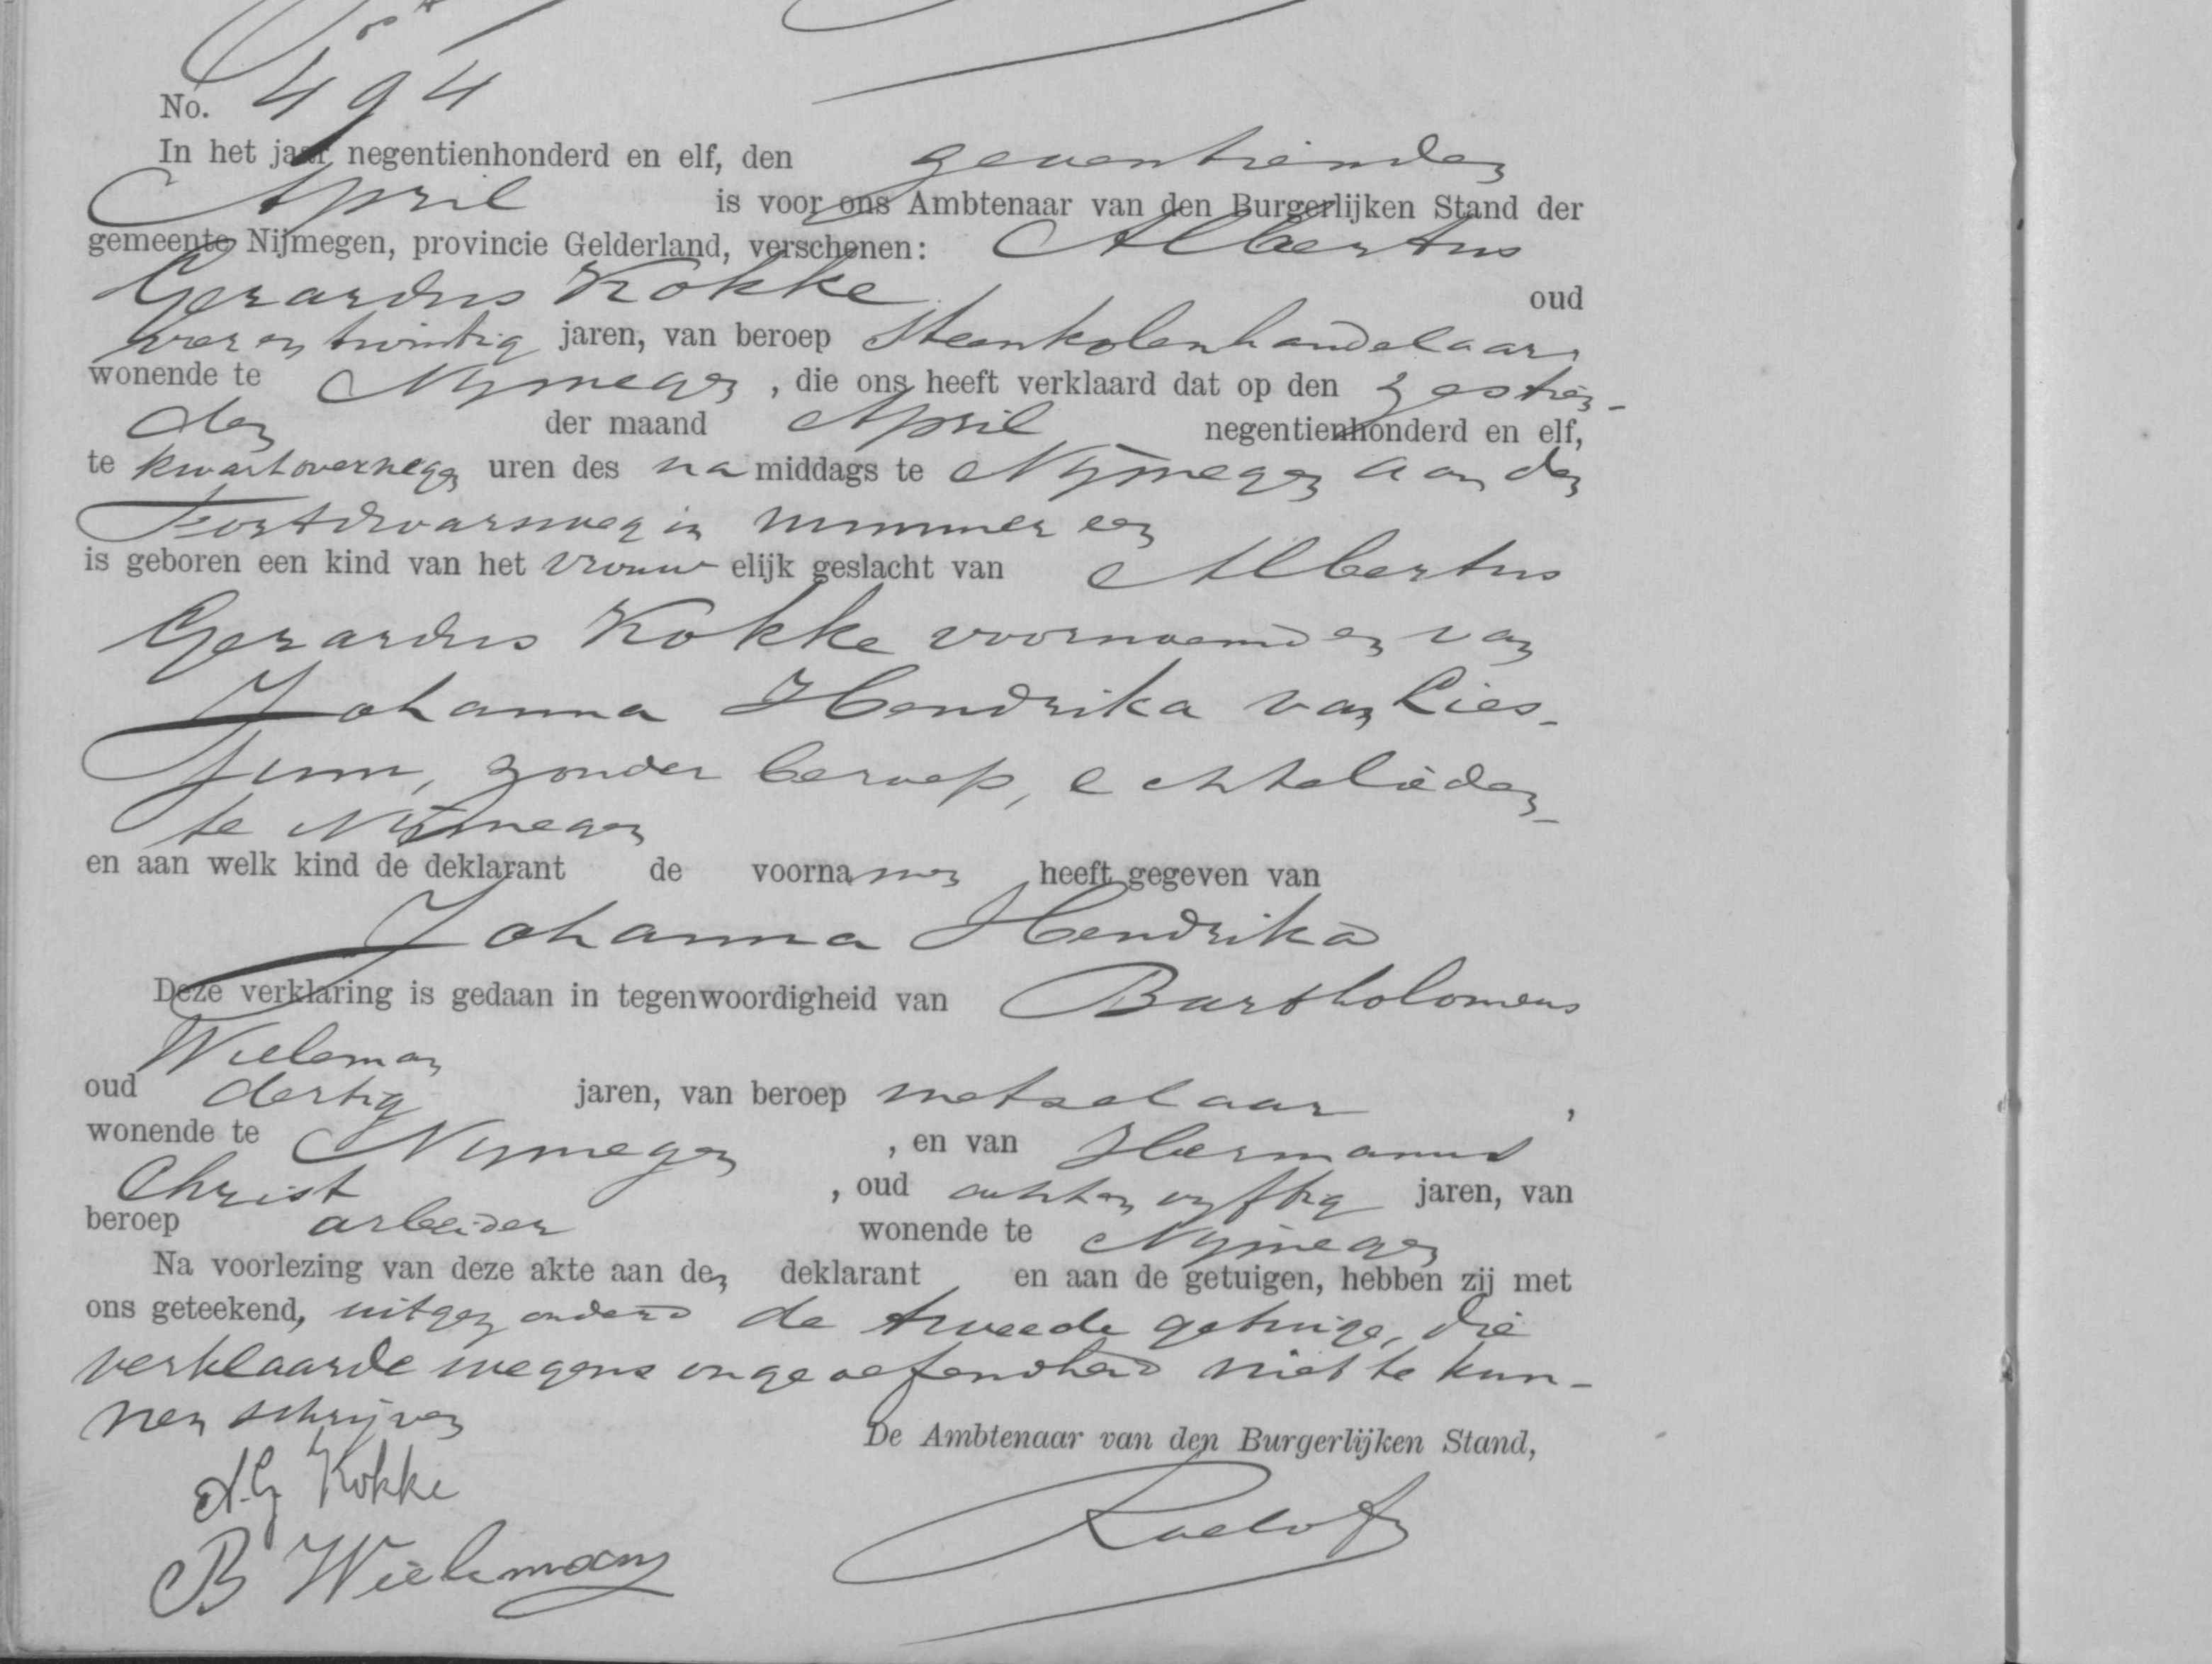 No. 494
In het jaar negentienhonderd en elf, den zeventienden
April is voor ons Ambtenaar van den Burgerlijken Stand der
gemeente Nijmegen, provincie Gelderland, verschenen: Albertus
Gerardus Kokke oud
vier en twintig jaren, van beroep steenkolenhandelaar,
wonende te Nijmegen, die ons heeft verklaard dat op den zestien-
den der maand April negentienhonderd en elf,
te kwart over negen uren des namiddags te Nijmegen aan den
nummer een
is geboren een kind van het vrouwelijk geslacht van Albertus
Gerardus Kokke voornoemd en van
Johanna Hendrika van Lies-
tum, zonder beroep, echtelieden
te Nijmegen
en aan welk kind de deklarant de voornamen heeft gegeven van
Johanna Hendrika
Deze verklaring is gedaan in tegenwoordigheid van Bartholomeus
Wieleman
oud dertig jaren, van beroep metselaar,
wonende te Nijmegen, en van Hermanus
Christ, oud acht en vijftig jaren, van
beroep arbeider wonende te Nijmegen
Na voorlezing van deze akte aan den deklarant en aan de getuigen, hebben zij met
ons geteekend, uitgezonderd de tweede getuige, die
verklaarde wegens ongeoefendheid niet te kun-
nen schrijven
De Ambtenaar van den Burgerlijken Stand,
A.G. Kokke
B Wieleman